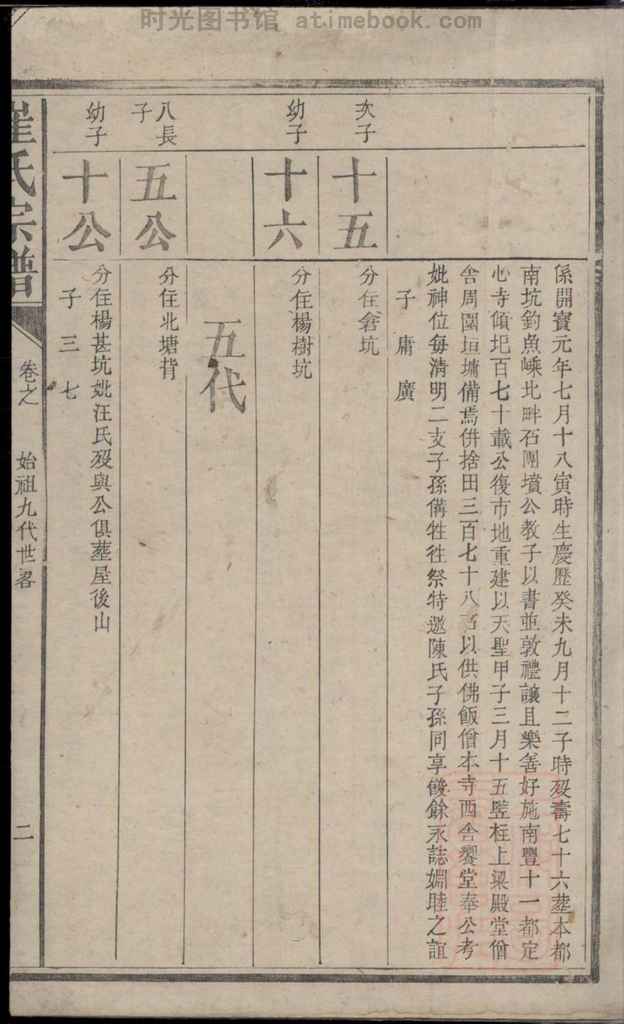 时光图书馆 atimebook.com
係開寶元年七月十八寅時生慶歷癸未九月十二子時歿壽七十六塟本都
南坑釣魚嵊北畔石團墳公教子以書並敦禮讓且樂善好施南豐十一都定
心寺傾圯百七十載公復市地重建以天聖甲子三月十五竪柱上梁殿堂僧
舍周圍垣墉備焉併捨田三百七十八石以供佛飯僧本寺西舍饗堂奉公考
妣神位每清明二支子孫備牲徃祭特邀陳氏子孫同享餕餘永誌姻睦之誼
子庸廣
次子
十五
分住倉坑
幼子
十六
分住楊樹坑
五代
八長子
五公
分住北塘背
幼子
十公
分住楊甚坑妣汪氏歿與公俱塟屋後山
子三七
崔氏宗譜
卷之
始祖九代世畧
二